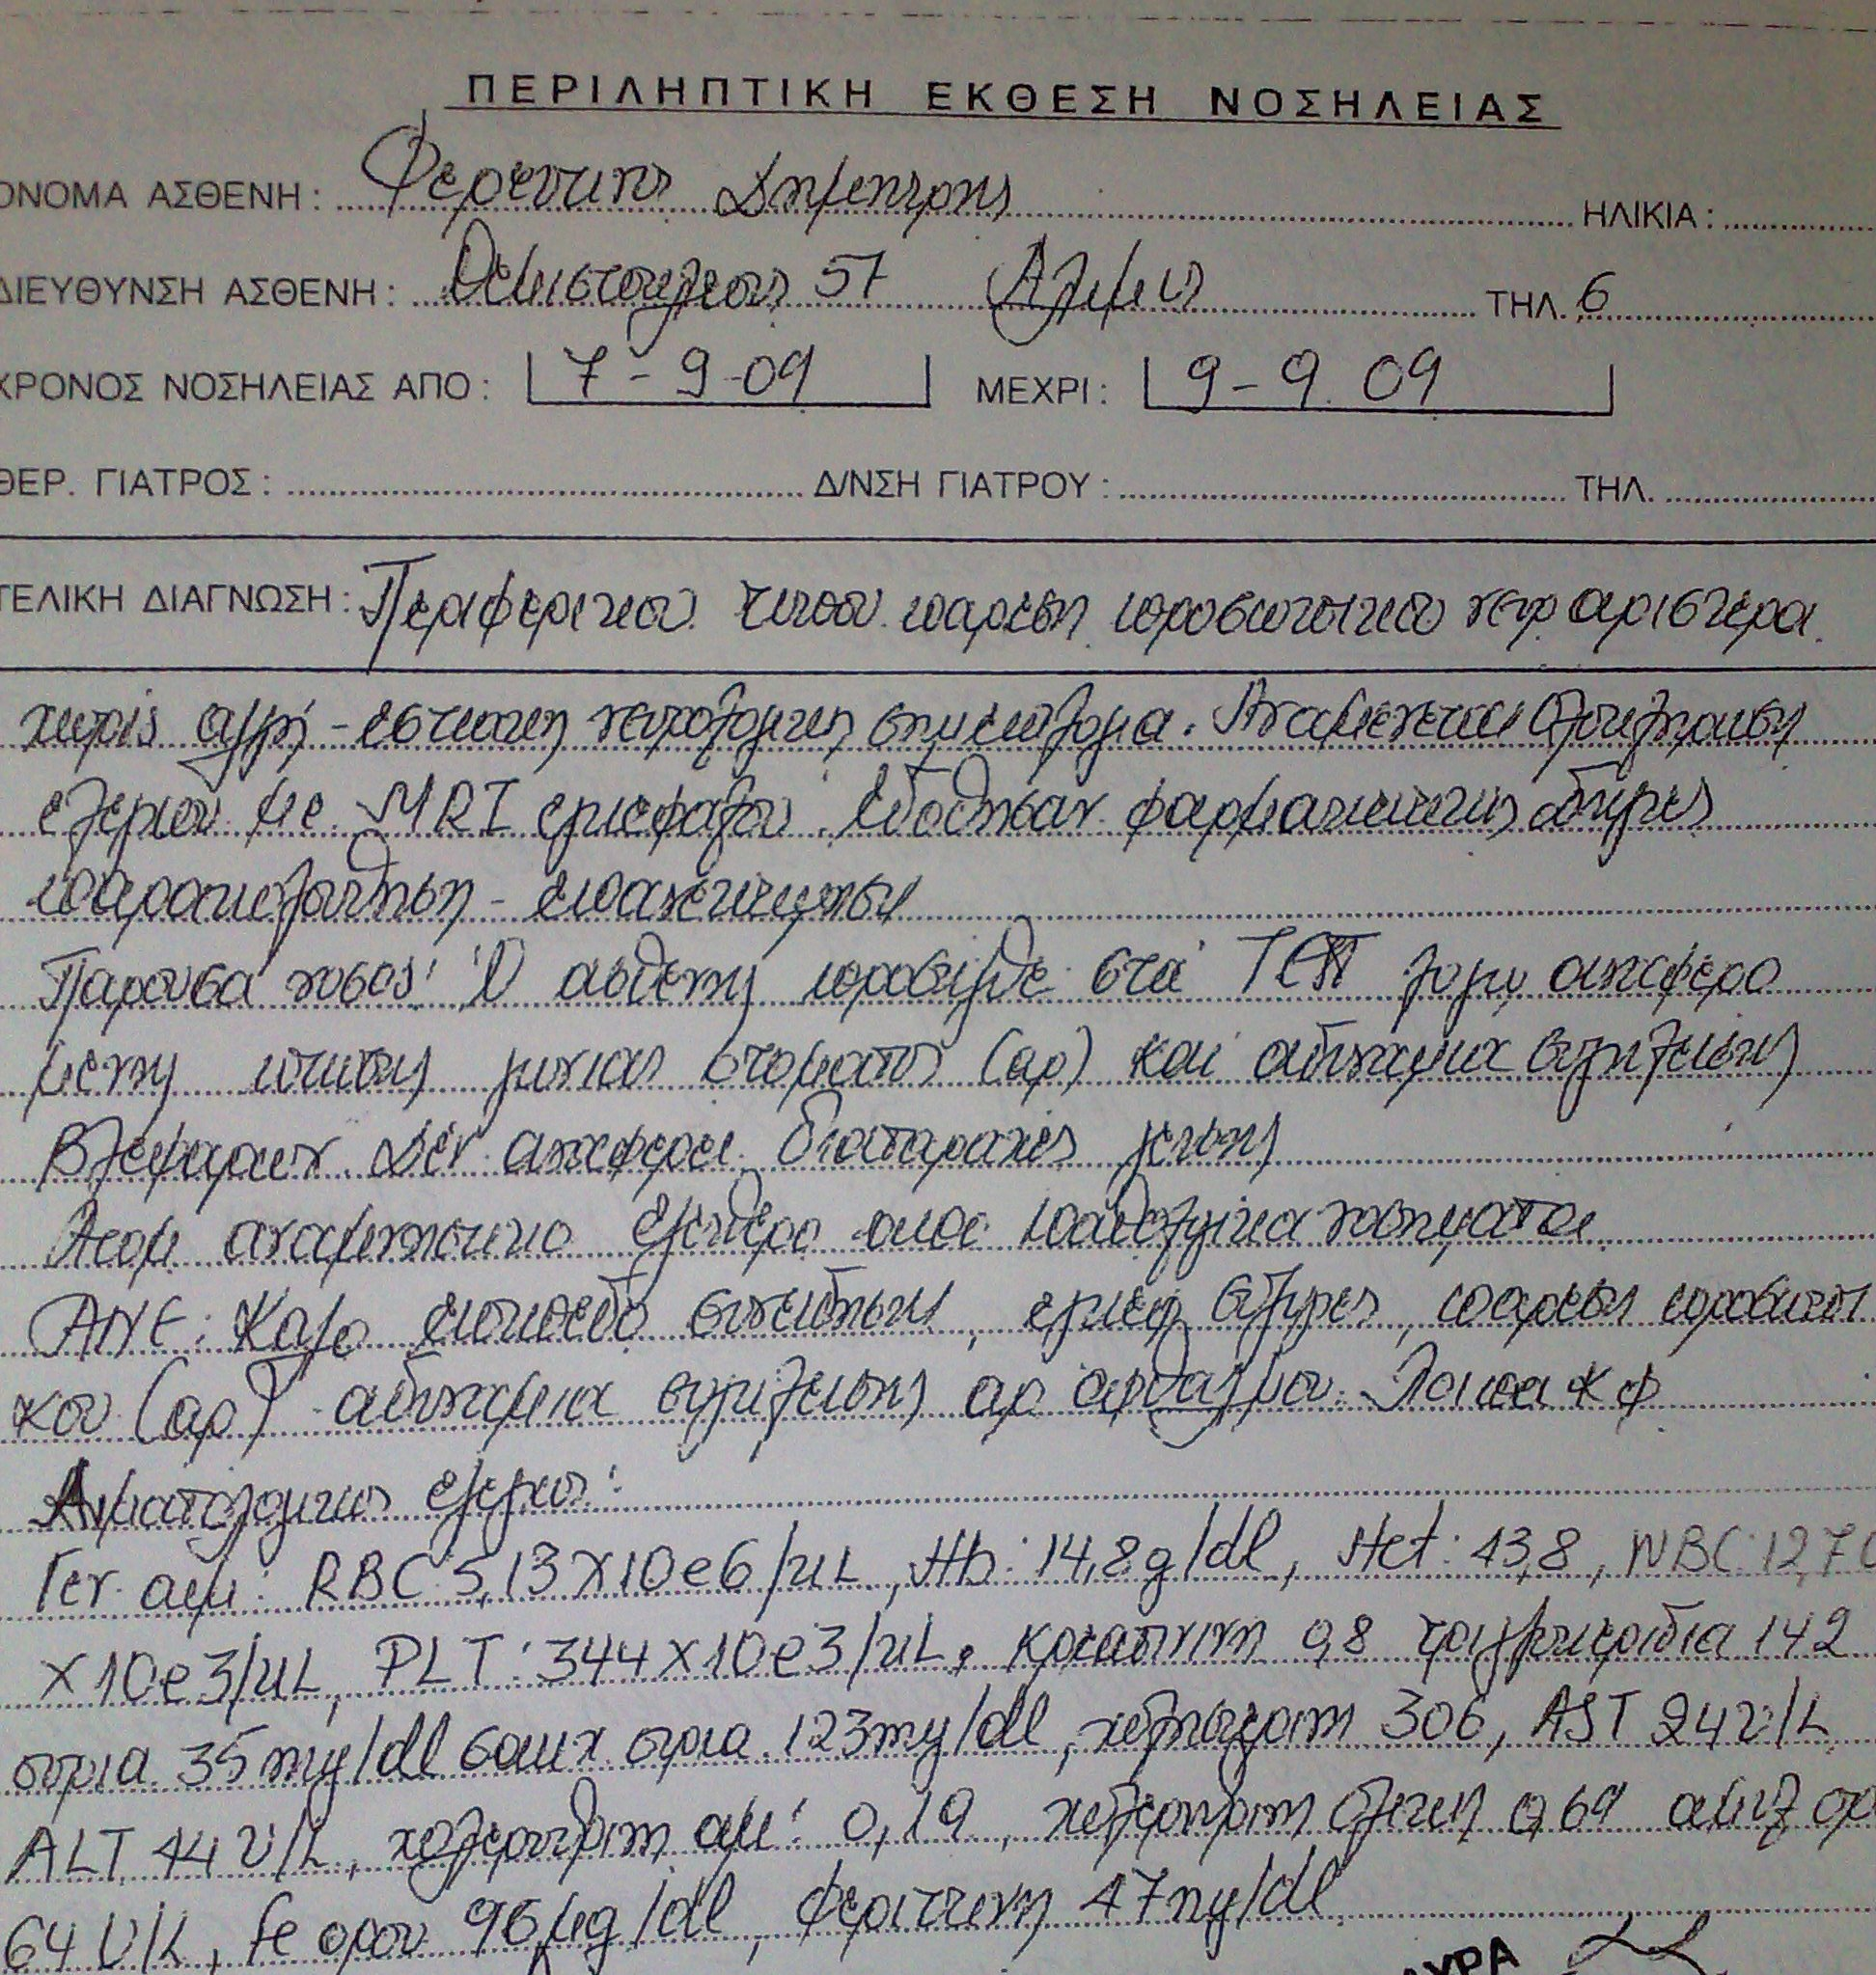 ΠΕΡΙΛΗΠΤΙΚΗ ΕΚΘΕΣΗ ΝΟΣΗΛΕΙΑΣ
ΟΝΟΜΑ ΑΣΘΕΝΗ: Δημητρης ΗΛΙΚΙΑ:
ΔΙΕΥΘΥΝΣΗ ΑΣΘΕΝΗ: 57 Αλιμος ΤΗΛ. 6
ΧΡΟΝΟΣ ΝΟΣΗΛΕΙΑΣ ΑΠΟ: 7-9-09 ΜΕΧΡΙ: 9-9.09
ΘΕΡ. ΓΙΑΤΡΟΣ: Δ/ΝΣΗ ΓΙΑΤΡΟΥ: ΤΗΛ.
ΤΕΛΙΚΗ ΔΙΑΓΝΩΣΗ: Περιφερικου τυπου παρεση προσωπικου νευρ αριστερα.
χωρίς αλλή-εστιακη νευρολογικη σημειολογια. Αναμενεται ολοκληρωση
ελεγχου με MRI εγκεφαλου. Εδοθησαν φαρμακευτικες οδηγιες
παρακολουθηση - επανεκτιμηση
Παρουσα νοσος: Ο ασθενης προσηλθε στα ΤΕΠ λογω αναφερο
μενης πτωσης γωνιας στοματος (αρ) και αδυναμια συγκλεισης
βλεφαρων. Δεν αναφερει διαταραχες γευσης
Ατομ αναμνηστικο ελευθερο απο παθολογικα νοσηματα
ΑΝΕ: Καλο επιπεδο συνειδησης, εγκεφ συζυγιες, παρεση προσωπι
κου (αρ) - αδυναμια συγκλεισης αρ οφθαλμου. Λοιπα κ φ
Αιματολογικος ελεγχος:
Γεν. αιμ: RBC: 5,13X10e6/uL, Hb: 14,8g/dl, Hct: 43,8, WBC: 12,70
X10e3/uL, PLT: 344X10e3/uL, κρεατινινη 0,8 τριγλυκεριδια 142
ουρια 35mg/dl σακχ 123mg/dl, χοληστερινη 306, AST 24U/L
ALT 44U/L, χολερυθρινη αμ: 0,19, χολερυθρινη ολικη 0,69 αμυλ ορ
64 U/L, Fe ορου 96μg/dl, φεριττινη 47ng/dl